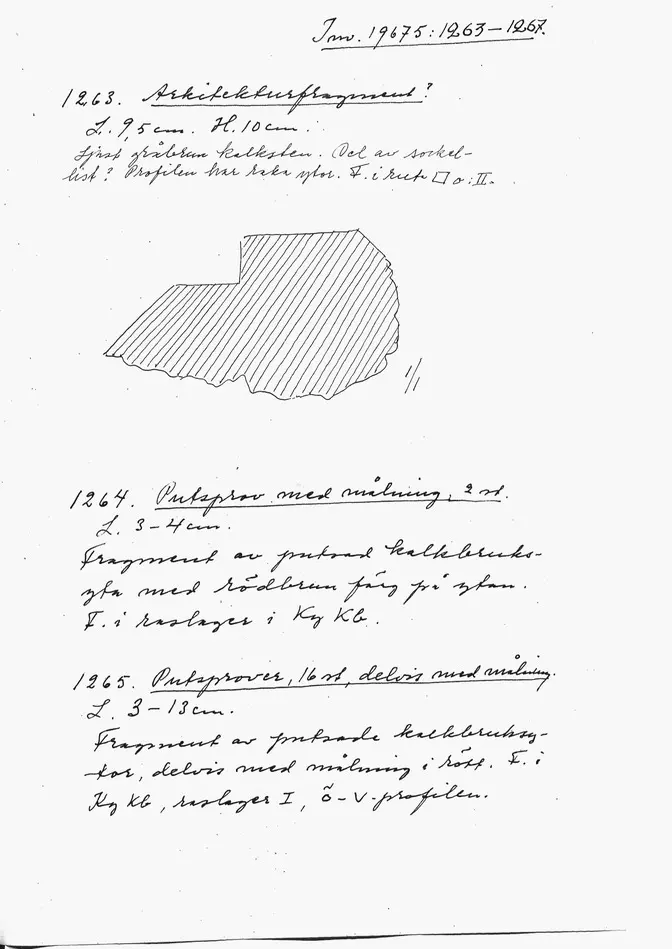 Inv. 19675:1263–1267.
1263. Arkitekturfragment?
L. 9,5 cm. H. 10 cm.
Ljust gråbrun kalksten. Del av sockel-
list? Profilen har raka ytor. F. i ruta □ o: II.
1/1
1264. Putsprov med målning, 2 st.
L. 3–4 cm.
Fragment av putsad kalkbruks-
yta med rödbrun färg på ytan.
F. i raslager i Kg Kb.
1265. Putsprover, 16 st, delvis med målning.
L. 3–13 cm.
Fragment av putsade kalkbruksy-
tor, delvis med målning i rött. F. i
Kg Kb, raslager I, ö–v-profilen.